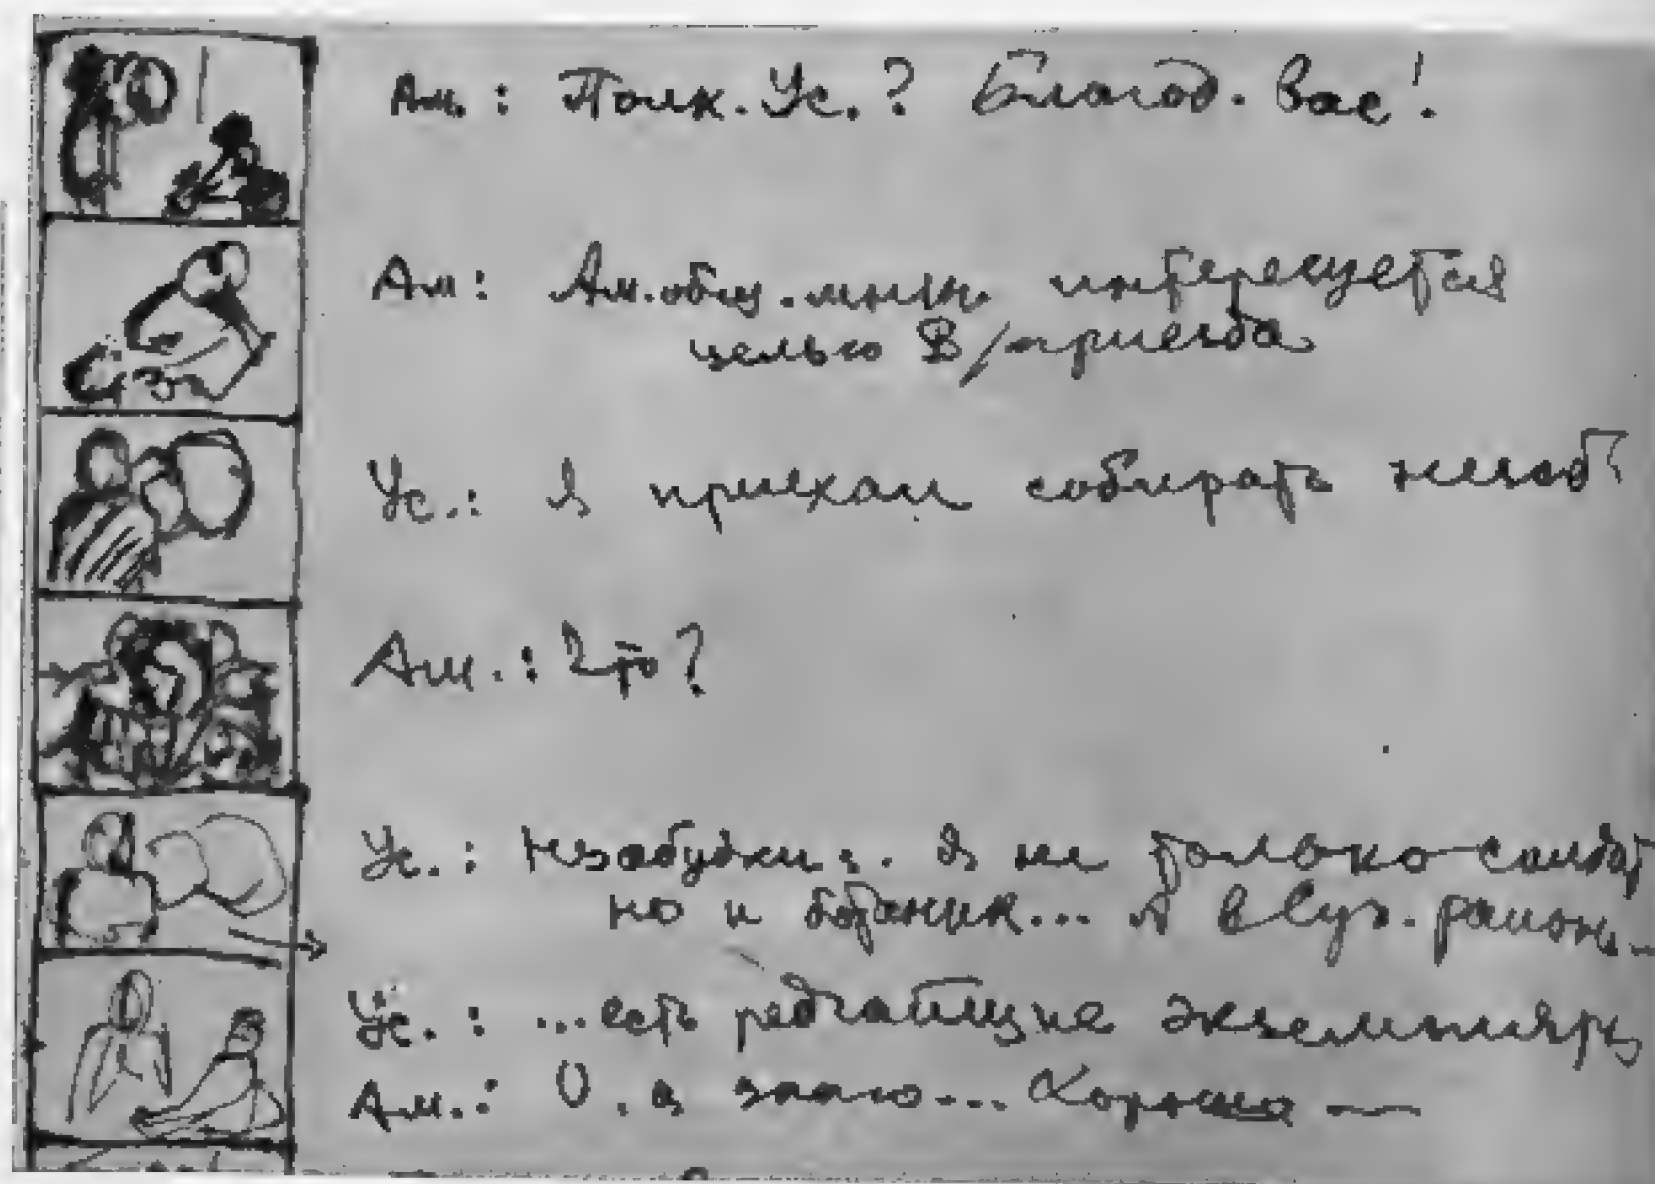 Ам.: Полк. Ус.? Благод. Вас!
Ам: Ам. общ. мнен. интересуется
целью В/приезда
Ус.: Я приехал собирать незаб
Ам.: Что?
Ус.: Незабудки... Я не только солдат
но и ботаник... А в Суз. районе
Ус.: ...есть редчайшие экземпляры
Ам.: О, я знаю... Хороша